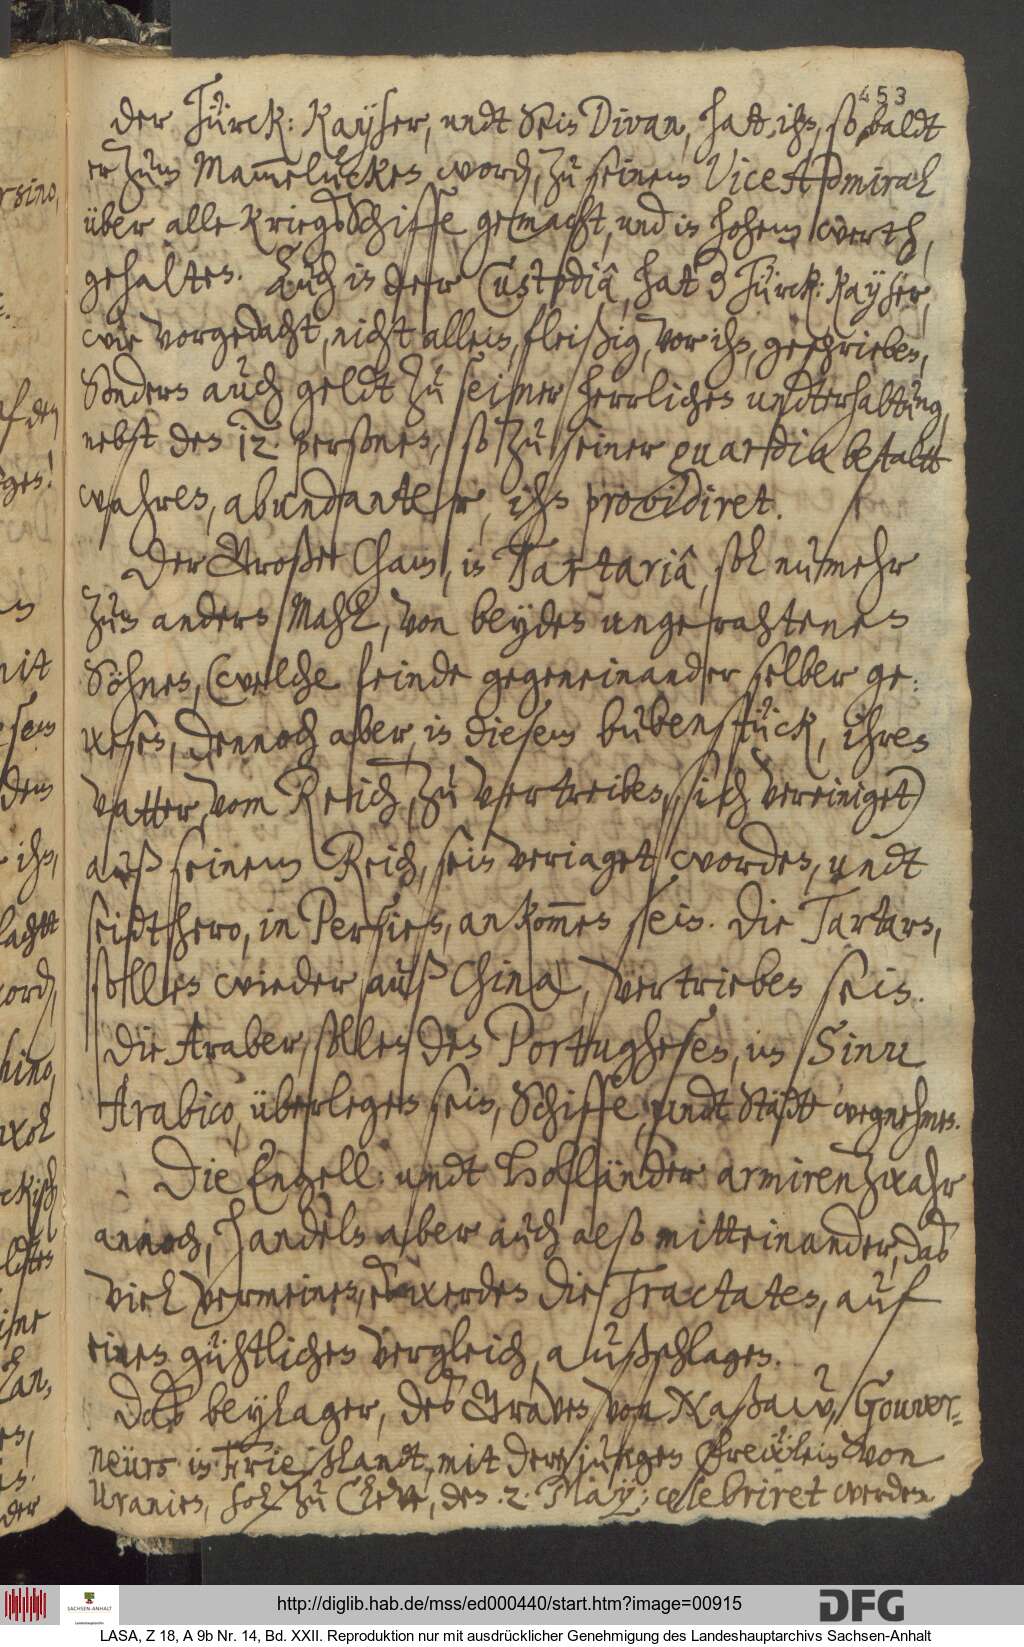 453
der Türck: Kayser, undt Sein Divan, hat ihn, so baldt
er zum Mam̅elucken, word, zu seinem Vice Admiral
über alle KriegsSchiffe gemacht, und in hohem werth,
gehalten. Auch in der Custodiâ, hat d Türck: Kayser,
wie vorgedacht, nicht allein, fleißig, vor ihn, geschrieben,
Sondern auch geldt zu seiner herrlichen undterhaltung,
nebst den 12. personen, so zu seiner guardia bestaltt
wahren, abundanter, ihn providiret.
Der Großer Cham, in Tartariâ, sol numehr
zum andern Mahl, von beyden ungerahtenen
Söhnen, (welche feinde gegeneinander selber ge-
wesen, dennoch aber, in diesem bubenstück, ihren
vatter, vom Reich, zu vertreiben, sich vereiniget)
auß seinem Reich, sein veriaget worden, undt
seidthero, in Persien, ankom̅en sein. Die Tartarn,
sollen wieder auß China, vertrieben sein.
Die Araber, sollen den Portughesen, in Sinu
Arabico, überlegen sein, Schiffe, undt Städt wegnehmen.
Die Engell: undt Holländer armiren zwahr
annoch, handeln aber auch also mitteinander, das
viel vermeinen, es werden die Tractaten, auf
einen gühtlichen vergleich, außschlagen.
Das beylager, des Graven von Naßaw, Gouver-
neurs in Frießlandt, mit der jungen Frewlein von
Uranien, sol zu Cleve, den .2. May: celebriret werden
http://diglib.hab.de/mss/ed000440/start.htm?image=00915
DFG
SACHSEN-ANHALT
LASA, Z 18, A 9b Nr. 14, Bd. XXII. Reproduktion nur mit ausdrücklicher Genehmigung des Landeshauptarchivs Sachsen-Anhalt